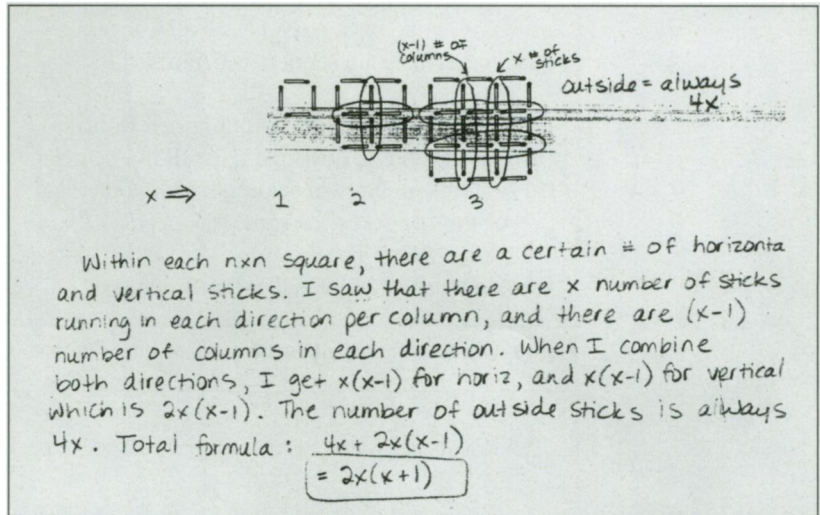 (x-1) # of
columns
x # of
sticks
outside = always
4x
x ⇒ 1 2 3
Within each nxn square, there are a certain # of horizonta
and vertical sticks. I saw that there are x number of sticks
running in each direction per column, and there are (x-1)
number of columns in each direction. When I combine
both directions, I get x(x-1) for horiz, and x(x-1) for vertical
which is 2x(x-1). The number of outside sticks is always
4x. Total formula: 4x + 2x(x-1)
= 2x(x+1)